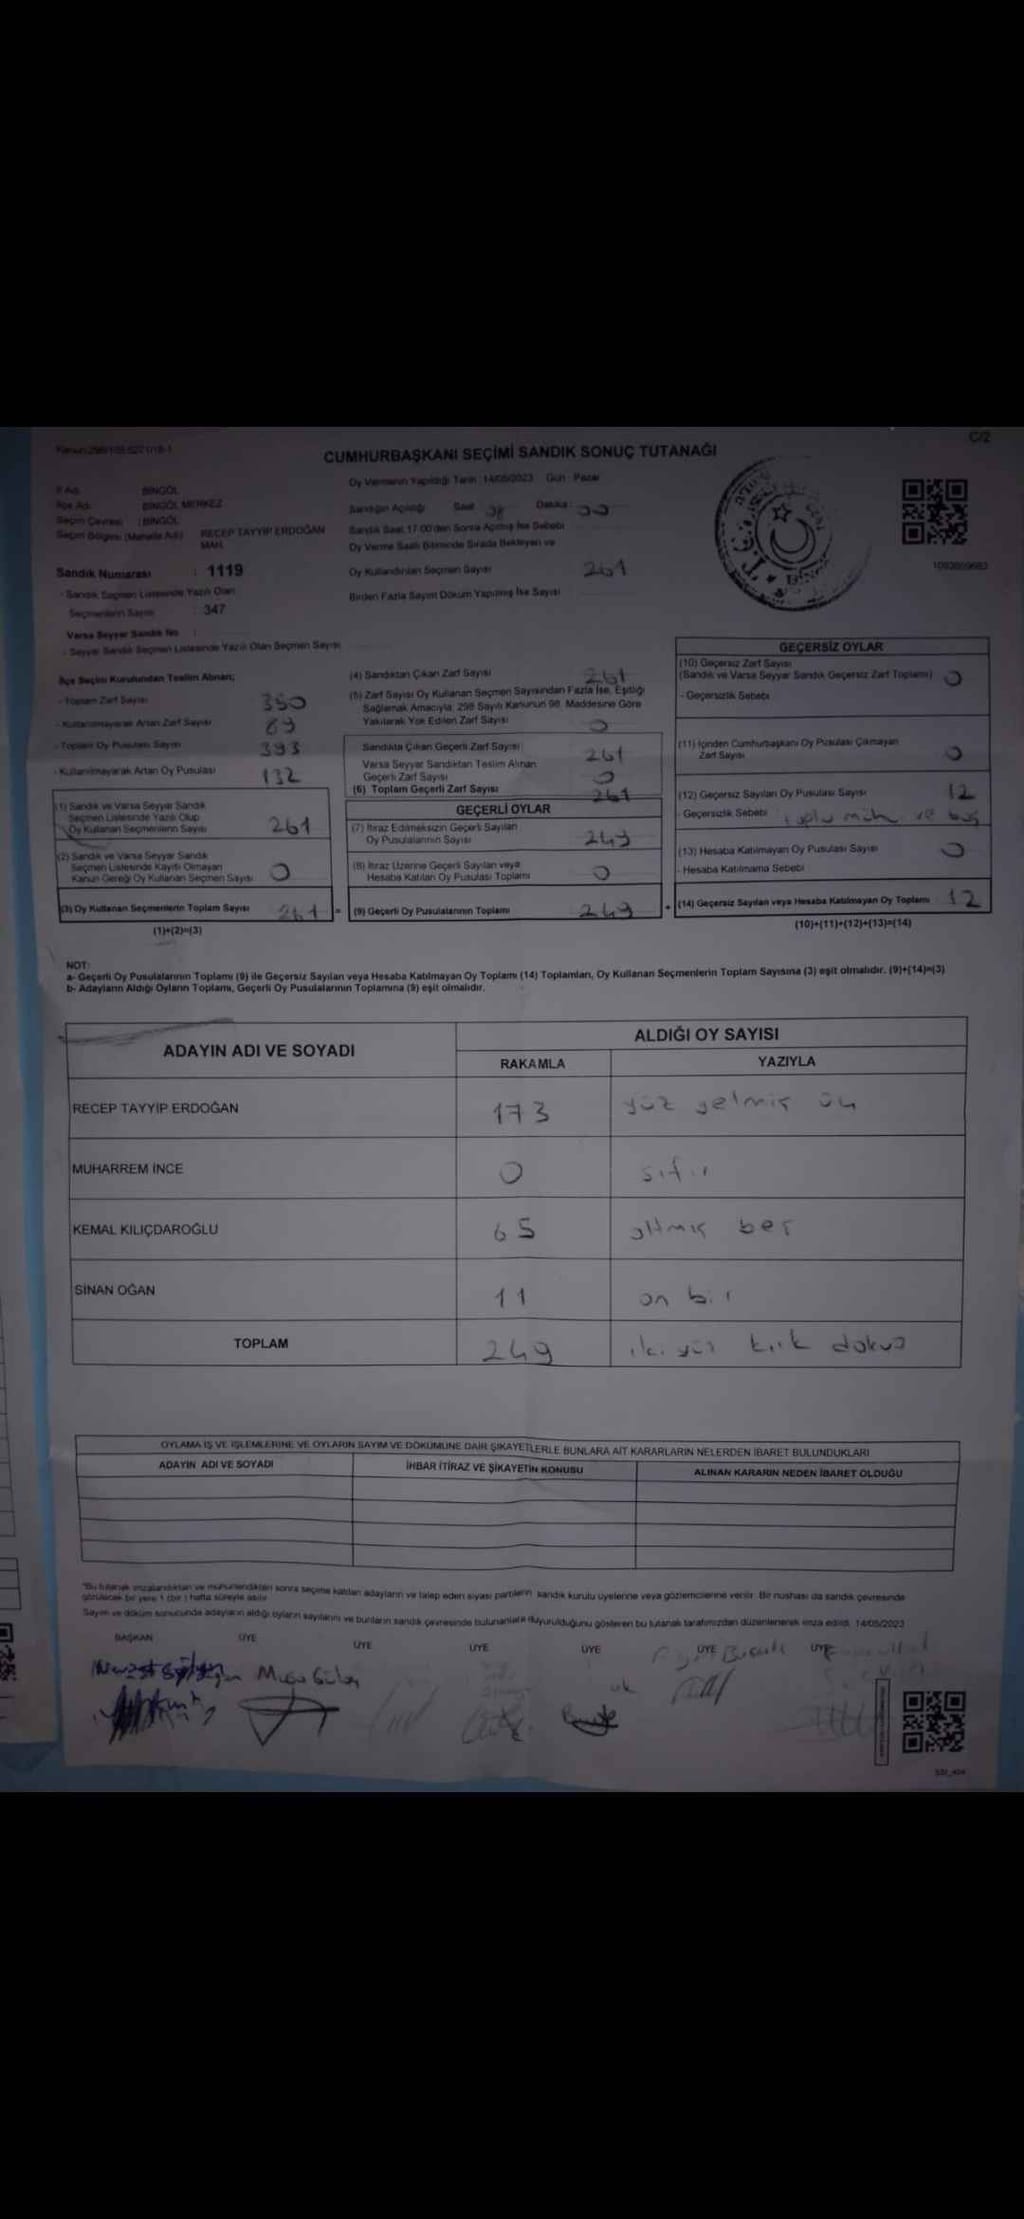 C/2
CUMHURBAŞKANI SEÇİMİ SANDIK SONUÇ TUTANAĞI
Oy Vermenin Yapıldığı Tarih : 14/05/2023 Gün : Pazar
İl Adı : BİNGÖL
İlçe Adı : BİNGÖL MERKEZ
Seçim Çevresi : BİNGÖL
Seçim Bölgesi (Mahalle Adı) : RECEP TAYYİP ERDOĞAN MAH.
Sandık Numarası : 1119
- Sandık Seçmen Listesinde Yazılı Olan
Seçmenlerin Sayısı : 347
Varsa Seyyar Sandık No :
- Seyyar Sandık Seçmen Listesinde Yazılı Olan Seçmen Sayısı
Sandığın Açıldığı Saat : 08 Dakika : 00
Sandık Saat 17:00'den Sonra Açılmış İse Sebebi
Oy Verme Saati Bitiminde Sırada Bekleyen ve
Oy Kullandırılan Seçmen Sayısı 261
Birden Fazla Sayım Döküm Yapılmış İse Sayısı
İlçe Seçim Kurulundan Teslim Alınan;
- Toplam Zarf Sayısı 350
- Kullanılmayarak Artan Zarf Sayısı 89
- Toplam Oy Pusulası Sayısı 393
- Kullanılmayarak Artan Oy Pusulası 132
(1) Sandık ve Varsa Seyyar Sandık
Seçmen Listesinde Yazılı Olup
Oy Kullanan Seçmenlerin Sayısı 261
(2) Sandık ve Varsa Seyyar Sandık
Seçmen Listesinde Kayıtlı Olmayan
Kanun Gereği Oy Kullanan Seçmen Sayısı 0
(3) Oy Kullanan Seçmenlerin Toplam Sayısı 261 =
(1)+(2)=(3)
(4) Sandıktan Çıkan Zarf Sayısı 261
(5) Zarf Sayısı Oy Kullanan Seçmen Sayısından Fazla İse, Eşitliği
Sağlamak Amacıyla, 298 Sayılı Kanunun 98. Maddesine Göre
Yakılarak Yok Edilen Zarf Sayısı 0
Sandıkta Çıkan Geçerli Zarf Sayısı 261
Varsa Seyyar Sandıktan Teslim Alınan
Geçerli Zarf Sayısı 0
(6) Toplam Geçerli Zarf Sayısı 261
GEÇERLİ OYLAR
(7) İtiraz Edilmeksizin Geçerli Sayılan
Oy Pusulalarının Sayısı 249
(8) İtiraz Üzerine Geçerli Sayılan veya
Hesaba Katılan Oy Pusulası Toplamı 0
(9) Geçerli Oy Pusulalarının Toplamı 249 +
GEÇERSİZ OYLAR
(10) Geçersiz Zarf Sayısı
(Sandık ve Varsa Seyyar Sandık Geçersiz Zarf Toplamı) 0
- Geçersizlik Sebebi
(11) İçinden Cumhurbaşkanı Oy Pusulası Çıkmayan
Zarf Sayısı 0
(12) Geçersiz Sayılan Oy Pusulası Sayısı 12
- Geçersizlik Sebebi ve boş
(13) Hesaba Katılmayan Oy Pusulası Sayısı 0
- Hesaba Katılmama Sebebi
(14) Geçersiz Sayılan veya Hesaba Katılmayan Oy Toplamı 12
(10)+(11)+(12)+(13)=(14)
NOT:
a- Geçerli Oy Pusulalarının Toplamı (9) ile Geçersiz Sayılan veya Hesaba Katılmayan Oy Toplamı (14) Toplamları, Oy Kullanan Seçmenlerin Toplam Sayısına (3) eşit olmalıdır. (9)+(14)=(3)
b- Adayların Aldığı Oyların Toplamı, Geçerli Oy Pusulalarının Toplamına (9) eşit olmalıdır.
ADAYIN ADI VE SOYADI ALDIĞI OY SAYISI
RAKAMLA YAZIYLA
RECEP TAYYİP ERDOĞAN 173 yüz yetmiş üç
MUHARREM İNCE 0 sıfır
KEMAL KILIÇDAROĞLU 65 altmış beş
SİNAN OĞAN 11 on bir
TOPLAM 249 iki yüz kırk dokuz
OYLAMA İŞ VE İŞLEMLERİNE VE OYLARIN SAYIM VE DÖKÜMÜNE DAİR ŞİKAYETLERLE BUNLARA AİT KARARLARIN NELERDEN İBARET BULUNDUKLARI
ADAYIN ADI VE SOYADI İHBAR İTİRAZ VE ŞİKAYETİN KONUSU ALINAN KARARIN NEDEN İBARET OLDUĞU
*Bu tutanak imzalandıktan ve mühürlendikten sonra seçime katılan adayların ve talep eden siyasi partilerin sandık kurulu üyelerine veya gözlemcilerine verilir. Bir nushası da sandık çevresinde
görülecek bir yere 1 (bir) hafta süreyle asılır.
Sayım ve döküm sonucunda adayların aldığı oyların sayılarını ve bunların sandık çevresinde bulunanlara duyurulduğunu gösteren bu tutanak tarafımızdan düzenlenerek imza edildi. 14/05/2023
BAŞKAN ÜYE ÜYE ÜYE ÜYE ÜYE ÜYE